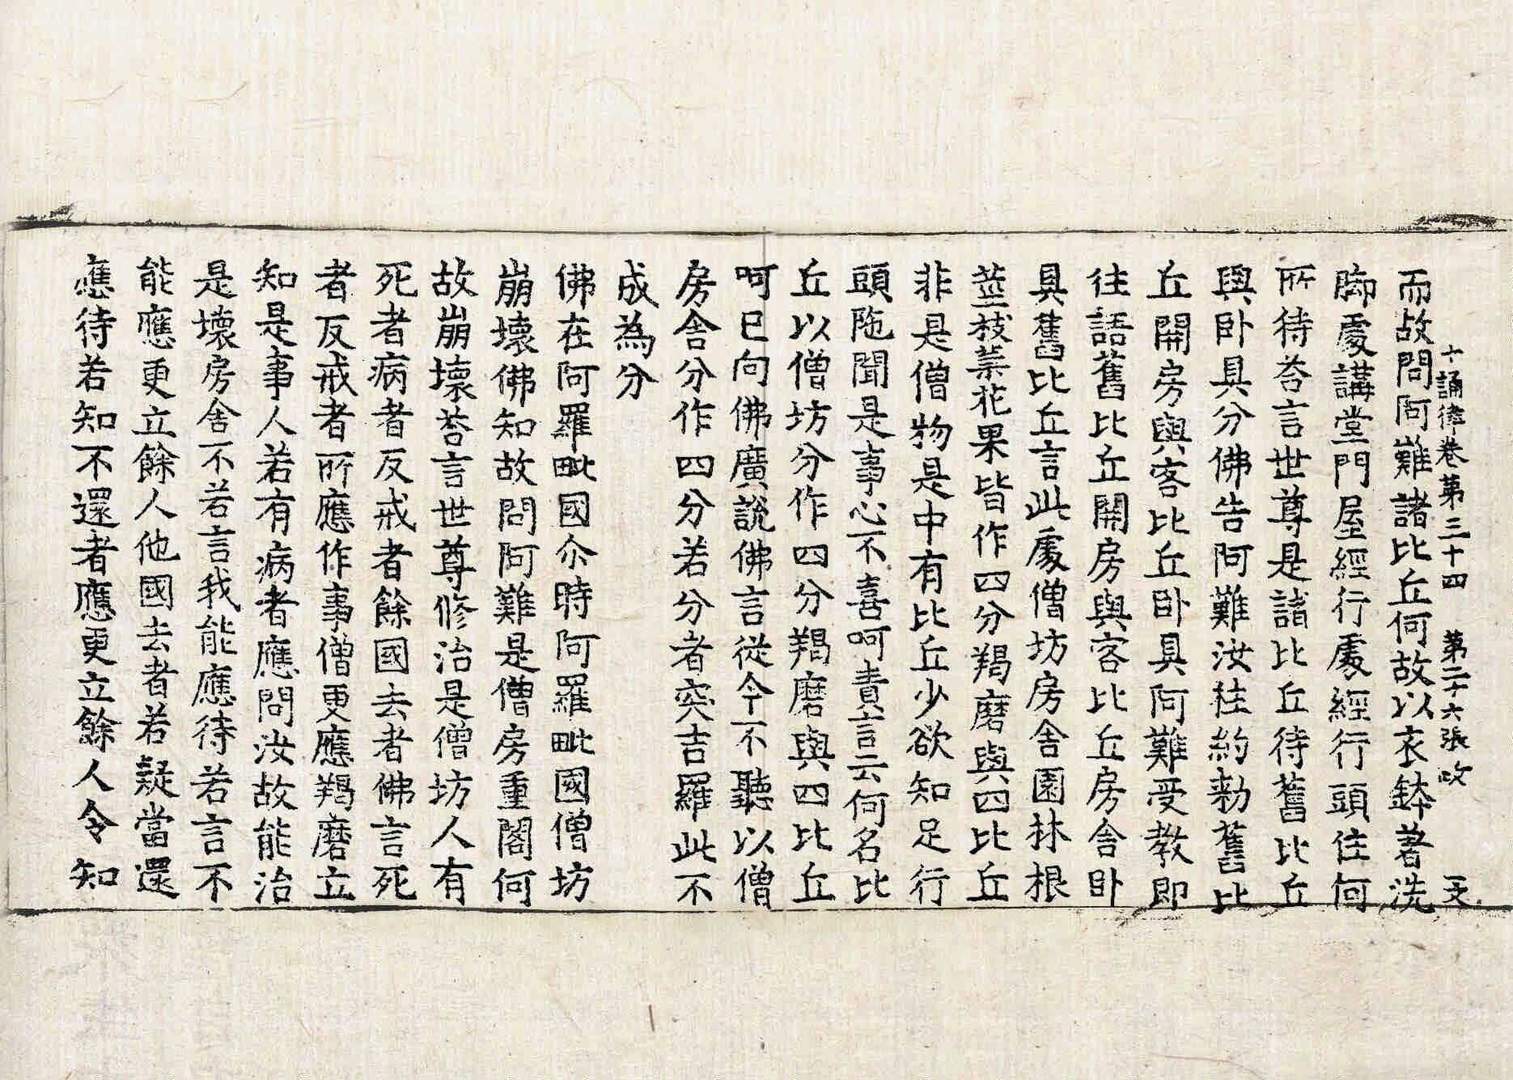 十誦律卷第三十四 第二十六張 攻
而故問阿難諸比丘何故以衣鉢著洗
脚處講堂門屋經行處經行頭住何
所待荅言世尊是諸比丘待舊比丘
與卧具分佛告阿難汝往約勑舊比
丘開房與客比丘卧具阿難受教即
往語舊比丘開房與客比丘房舍卧
具舊比丘言此處僧坊房舍園林根
莖枝葉花果皆作四分羯磨與四比丘
非是僧物是中有比丘少欲知足行
頭陁聞是事心不喜呵責言云何名比
丘以僧坊分作四分羯磨與四比丘
呵已向佛廣說佛言從今不聽以僧
房舍分作四分若分者突吉羅此不
成為分
佛在阿羅毗國尒時阿羅毗國僧坊
崩壞佛知故問阿難是僧房重閣何
故崩壞荅言世尊修治是僧坊人有
死者病者反戒者餘國去者佛言死
者反戒者所應作事僧更應羯磨立
知是事人若有病者應問汝故能治
是壞房舍不若言我能應待若言不
能應更立餘人他國去者若疑當還
應待若知不還者應更立餘人令知